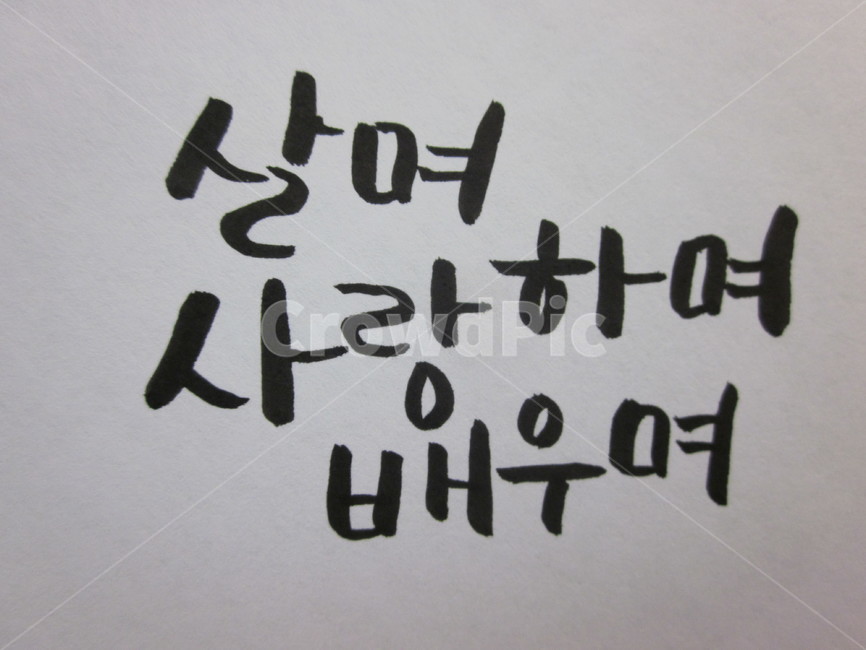 살며
사랑하며
배우며
CrowdPic